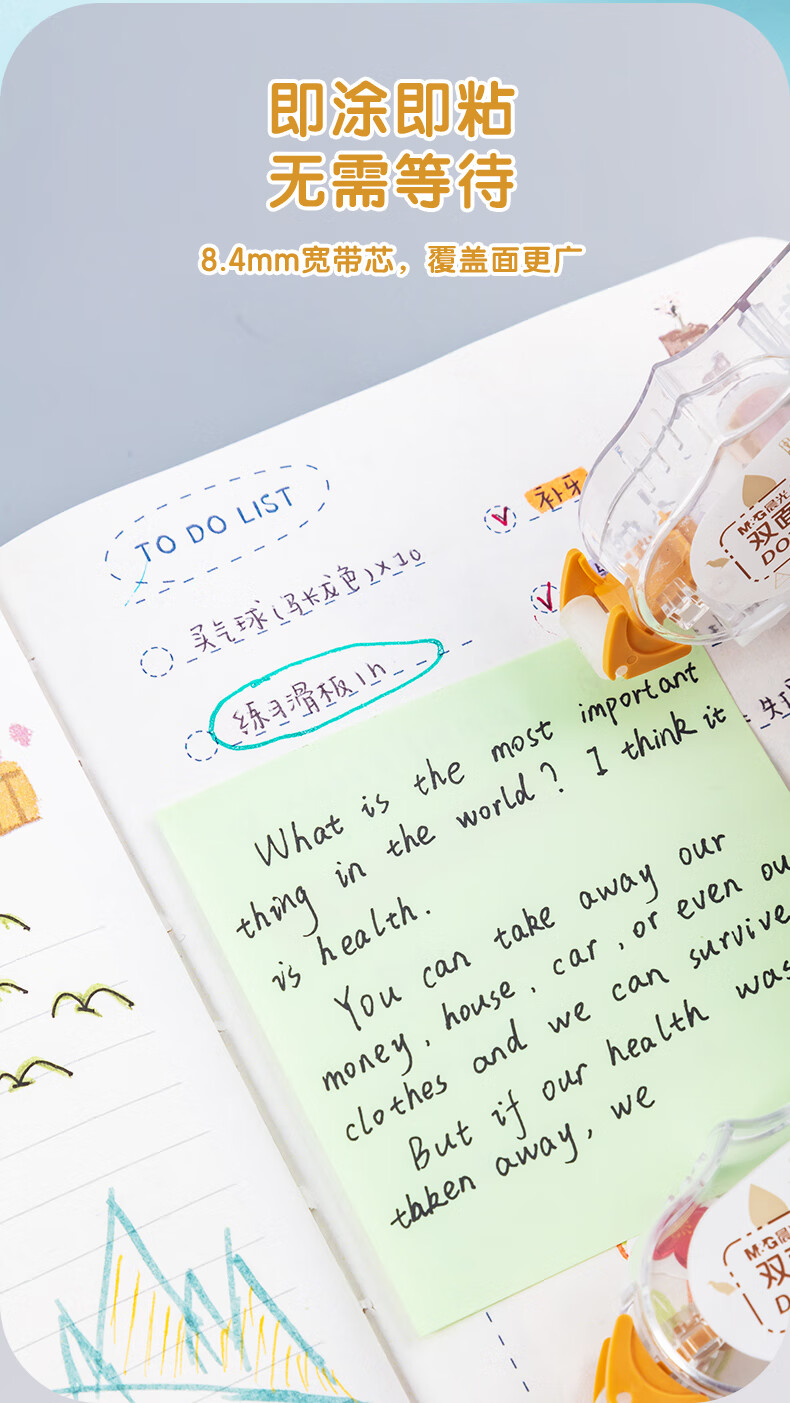 即涂即粘
无需等待
8.4mm宽带芯，覆盖面更广
TO DO LIST
补牙
买气球(马卡龙色)×10
练习滑板1h
M&G晨光
双面
DO
What is the most important
thing in the world? I think it
is health.
You can take away our
money, house, car, or even ou
clothes and we can survive
But if our health was
taken away, we
M&G晨光
双面
D